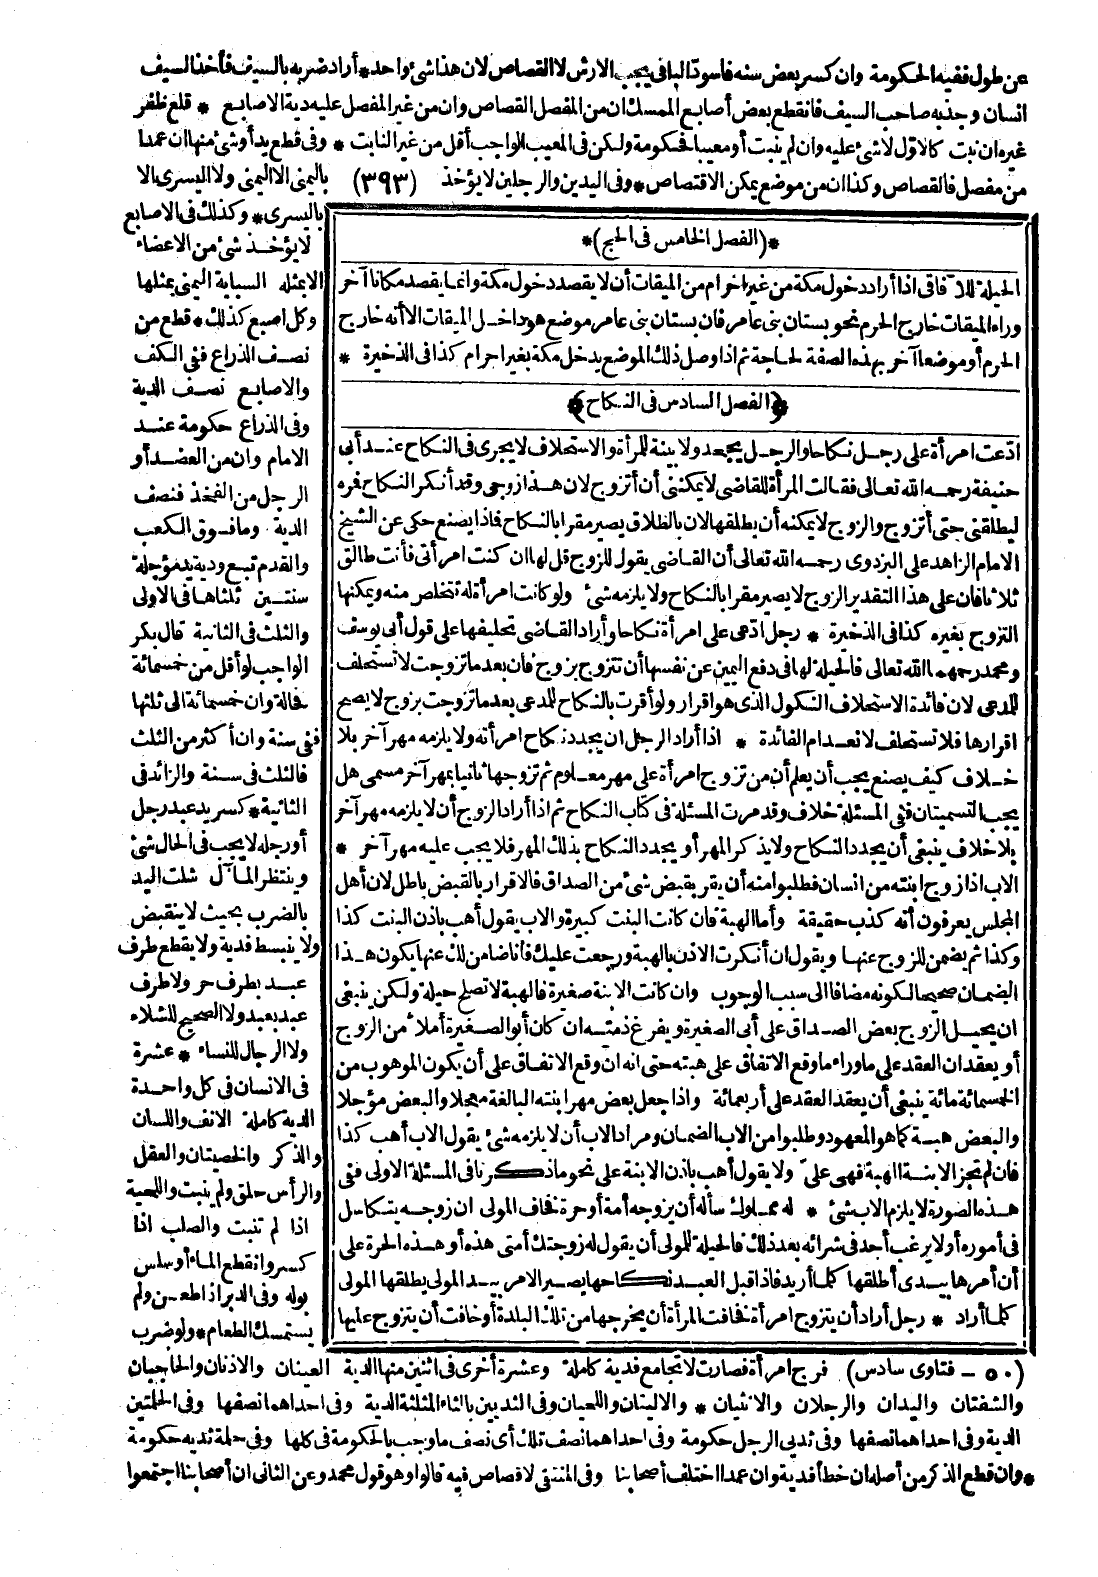 عن طول ففيه الحكومة وان كسر بعض سنه فاسودّ الباقى يجب الارش لا القصاص لان هذا شئ واحد * أراد ضربه بالسيف فأخذ السيف
انسان وجذبه صاحب السيف فانقطع بعض أصابع الممسك ان من المفصل القصاص وان من غير المفصل عليه دية الاصابع * قلع ظفر
غيره ان نبت كالاوّل لا شئ عليه وان لم ينبت أو معيبا فحكومة ولكن فى المعيب الواجب أقل من غير النابت * وفى قطع يد أو شئ منها ان عمدا
من مفصل فالقصاص وكذا ان من موضع يمكن الاقتصاص * وفى اليدين والرجلين لا يؤخذ (٣٩٣) باليمنى الا اليمنى ولا اليسرى الا
باليسرى * وكذلك فى الاصابع
لا يؤخذ شئ من الاعضاء
الا بمثله السبابة اليمنى بمثلها
وكل اصبع كذلك * قطع من
نصف الذراع ففى الكف
والاصابع نصف الدية
وفى الذراع حكومة عند
الامام وان من العضد أو
الرجل من الفخذ فنصف
الدية وما فوق الكعب
والقدم تبع ودية يد مؤجلة
سنتين ثلثاها فى الاولى
والثلث فى الثانية قال بكر
الواجب لو أقل من خمسمائة
فحالة وان خمسمائة الى ثلثها
ففى سنة وان أكثر من الثلث
فالثلث فى سنة والزائد فى
الثانية * كسر يد عبد رجل
أو رجله لا يجب فى الحال شئ
وينتظر المآل شلت اليد
بالضرب بحيث لا ينقبض
ولا ينبسط فدية ولا يقطع طرف
عبد بطرف حر ولا طرف
عبد بعبد ولا الصحيح للشلاء
ولا الرجال للنساء * عشرة
فى الانسان فى كل واحدة
الدية كاملة الانف واللسان
والذكر والخصيتان والعقل
والرأس حلق ولم ينبت واللحية
اذا لم تنبت والصلب اذا
كسر وانقطع الماء أو سلس
بوله وفى الدبر اذا طعن ولم
يستمسك الطعام * ولو ضرب
*(الفصل الخامس فى الحج)*
الحيلة للآفاقى اذا أراد دخول مكة من غير احرام من الميقات أن لا يقصد دخول مكة وانما يقصد مكانا آخر
وراء الميقات خارج الحرم نحو بستان بنى عامر فان بستان بنى عامر موضع هو داخل الميقات الا أنه خارج
الحرم أو موضعا آخر بهذه الصفة لحاجة ثم اذا وصل ذلك الموضع يدخل مكة بغير احرام كذا فى الذخيرة *
*(الفصل السادس فى النكاح)*
ادّعت امرأة على رجل نكاحا والرجل يجحد ولا بينة للمرأة والاستحلاف لا يجرى فى النكاح عند أبى
حنيفة رحمه الله تعالى فقالت المرأة للقاضى لا يمكننى أن أتزوج لان هذا زوجى وقد أنكر النكاح فمره
ليطلقنى حتى أتزوج والزوج لا يمكنه أن يطلقها لان بالطلاق يصير مقرا بالنكاح فماذا يصنع حكى عن الشيخ
الامام الزاهد على البزدوى رحمه الله تعالى أن القاضى يقول للزوج قل لها ان كنت امرأتى فأنت طالق
ثلاثا فان على هذا التقدير الزوج لا يصير مقرا بالنكاح ولا يلزمه شئ ولو كانت امرأة له تتخلص منه ويمكنها
التزوج بغيره كذا فى الذخيرة * رجل ادّعى على امرأة نكاحا وأراد القاضى تحليفها على قول أبى يوسف
ومحمد رحمهما الله تعالى فالحيلة لها فى دفع اليمين عن نفسها أن تتزوج بزوج فان بعد ما تزوجت لا تستحلف
للمدعى لان فائدة الاستحلاف النكول الذى هو اقرار ولو أقرت بالنكاح للمدعى بعد ما تزوجت بزوج لا يصح
اقرارها فلا تستحلف لانعدام الفائدة * اذا أراد الرجل ان يجدد نكاح امرأته ولا يلزمه مهر آخر بلا
خلاف كيف يصنع يجب أن يعلم أن من تزوج امرأة على مهر معلوم ثم تزوجها ثانيا بمهر آخر مسمى هل
يجب التسميتان ففى المسئلة خلاف وقد مرت المسئلة فى كتاب النكاح ثم اذا أراد الزوج أن لا يلزمه مهر آخر
بلا خلاف ينبغى أن يجدد النكاح ولا يذكر المهر أو يجدد النكاح بذلك المهر فلا يجب عليه مهر آخر *
الاب اذا زوج ابنته من انسان فطلبوا منه أن يقر بقبض شئ من الصداق فالاقرار بالقبض باطل لان أهل
المجلس يعرفون أنه كذب حقيقة وأما الهبة فان كانت البنت كبيرة والاب يقول أهب باذن البنت كذا
وكذا ثم يضمن للزوج عنها ويقول ان أنكرت الاذن بالهبة ورجعت عليك فأنا ضامن لك عنها يكون هذا
الضمان صحيحا لكونه مضافا الى سبب الوجوب وان كانت الابنة صغيرة فالهبة لا تصلح حيلة ولكن ينبغى
ان يحيل الزوج بعض الصداق على أبى الصغيرة ويفرغ ذمته ان كان أبو الصغيرة أملأ من الزوج
أو يعقدان العقد على ما وراء ما وقع الاتفاق على هبته حتى انه ان وقع الاتفاق على أن يكون الموهوب من
الخمسمائة مائة ينبغى أن يعقد العقد على أربعمائة واذا جعل بعض مهر ابنته البالغة معجلا والبعض مؤجلا
والبعض هبة كما هو المعهود وطلبوا من الاب الضمان ومراد الاب أن لا يلزمه شئ يقول الاب أهب كذا
فان لم تجز الابنة الهبة فهى علىّ ولا يقول أهب باذن الابنة على نحو ما ذكرنا فى المسئلة الاولى ففى
هذه الصورة لا يلزم الاب شئ * له مملوك سأله أن يزوجه أمة أو حرة فخاف المولى ان زوجه يتكاسل
فى أموره أو لا يرغب أحد فى شرائه بعد ذلك فالحيلة للمولى أن يقول له زوجتك أمتى هذه أو هذه الحرة على
أن أمرها بيدى أطلقها كلما أريد فاذا قبل العبد نكاحها يصير الامر بيد المولى يطلقها المولى
كلما أراد * رجل أراد أن يتزوج امرأة فخافت المرأة أن يخرجها من تلك البلدة أو خافت أن يتزوج عليها
(٥٠ - فتاوى سادس) فرج امرأة فصارت لا تجامع فدية كاملة وعشرة أخرى فى اثنين منها الدية العينان والاذنان والحاجبان
والشفتان واليدان والرجلان والانثيان * والاليتان واللحيان وفى الثديين بالثاء المثلثة الدية وفى احداهما نصفها وفى الحلمتين
الدية وفى احداهما نصفها وفى ثديى الرجل حكومة وفى احداهما نصف تلك أى نصف ما وجب بالحكومة فى كلها وفى حلمة ثديه حكومة
* وان قطع الذكر من أصله ان خطأ فدية وان عمدا اختلف أصحابنا وفى المنتقى لا قصاص فيه قالوا وهو قول محمد وعن الثانى ان أصحابنا اجتمعوا